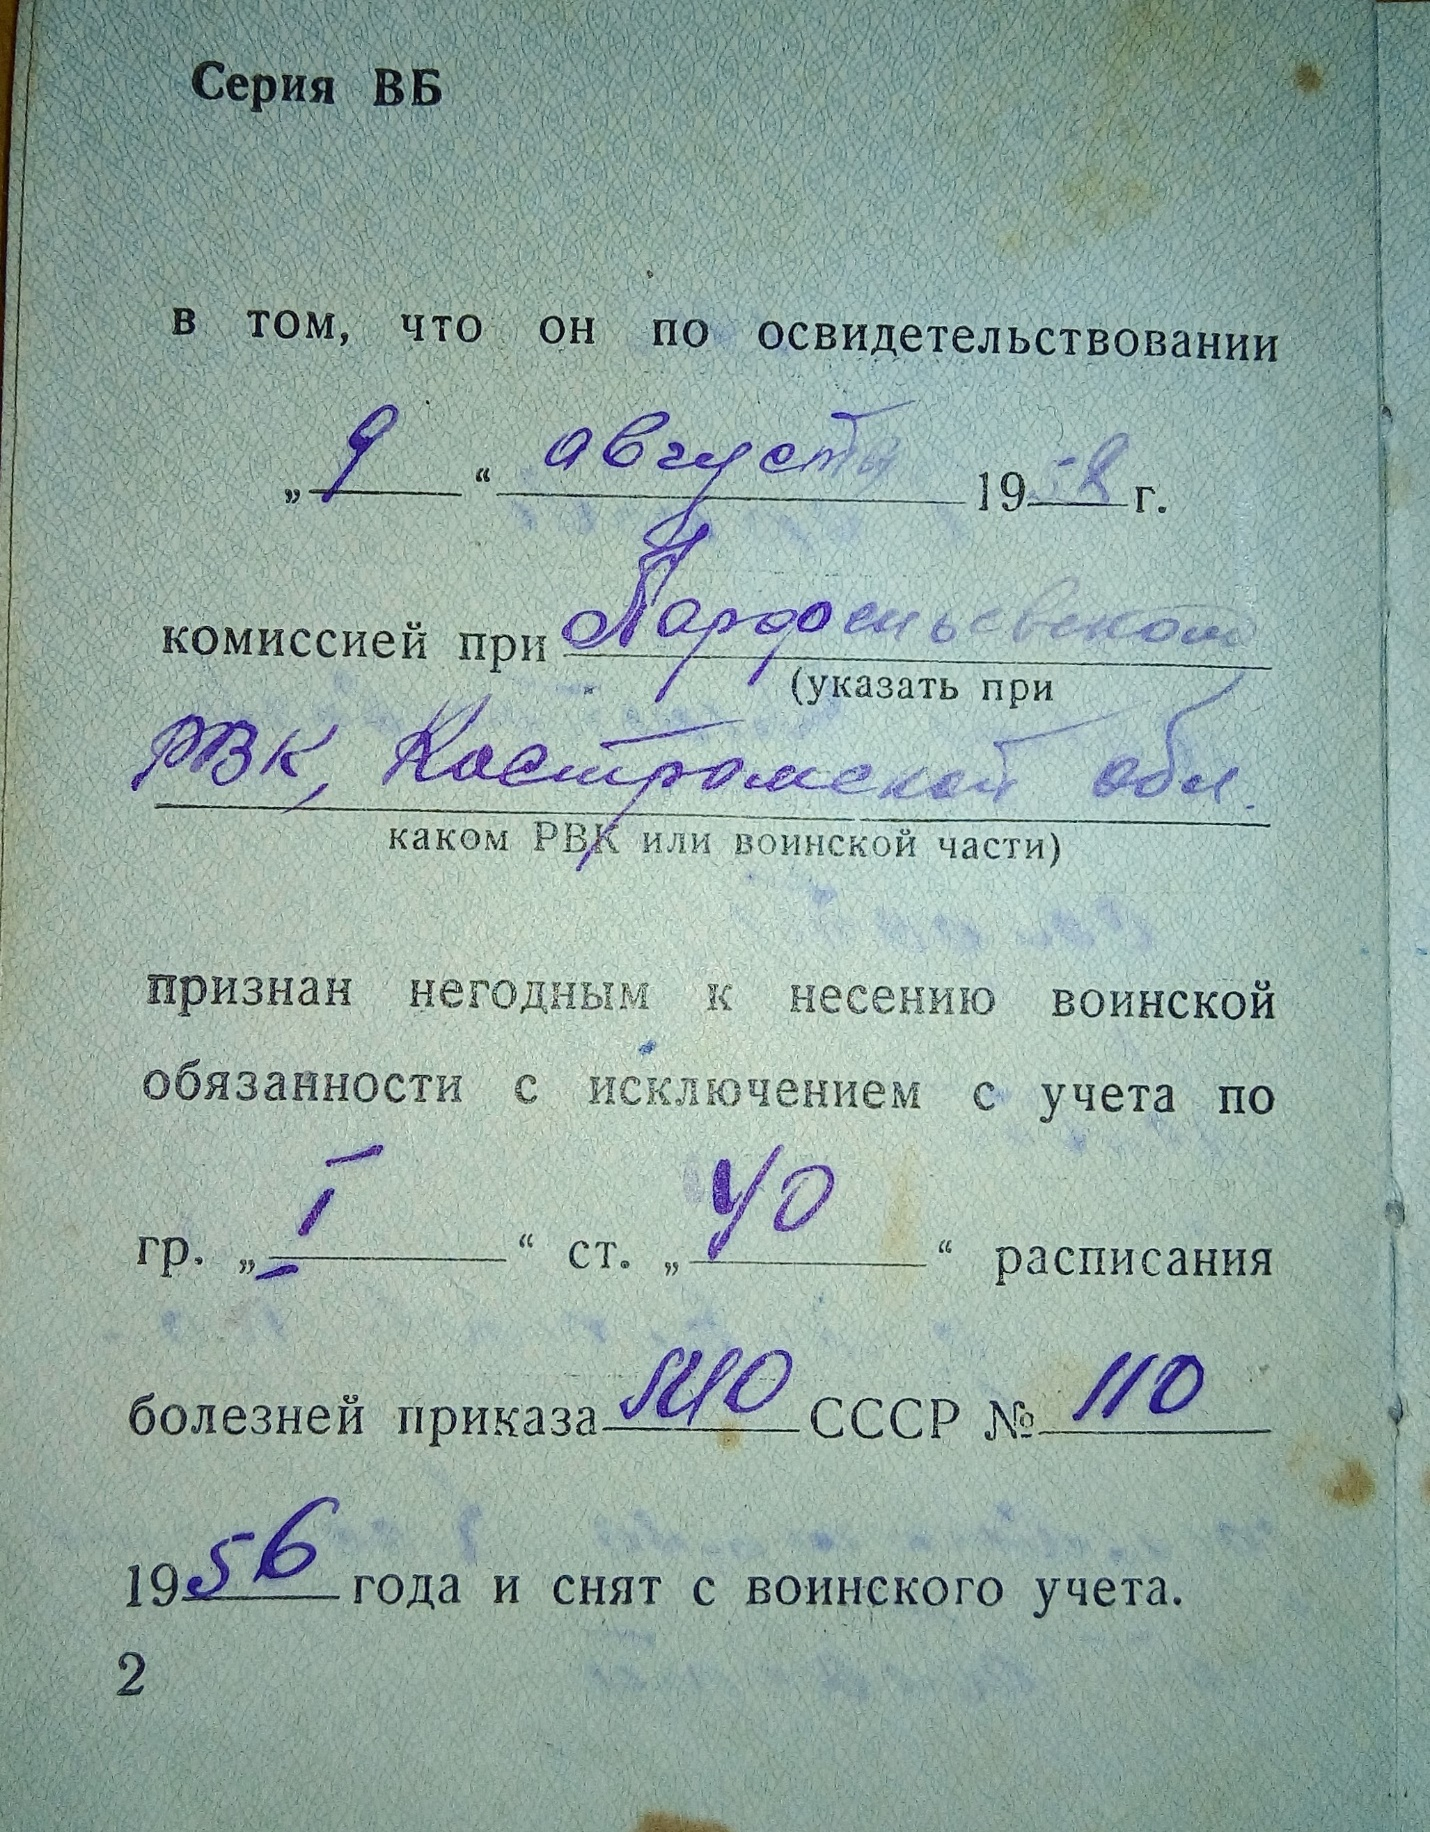 Серия ВБ
в том, что он по освидетельствовании
„ 9 “ августа 1958 г.
комиссией при Парфеньевском
(указать при
РВК, Костромской обл.
каком РВК или воинской части)
признан негодным к несению воинской
обязанности с исключением с учета по
гр. „ I “ ст. „ 40 “ расписания
болезней приказа МО СССР № 110
1956 года и снят с воинского учета.
2